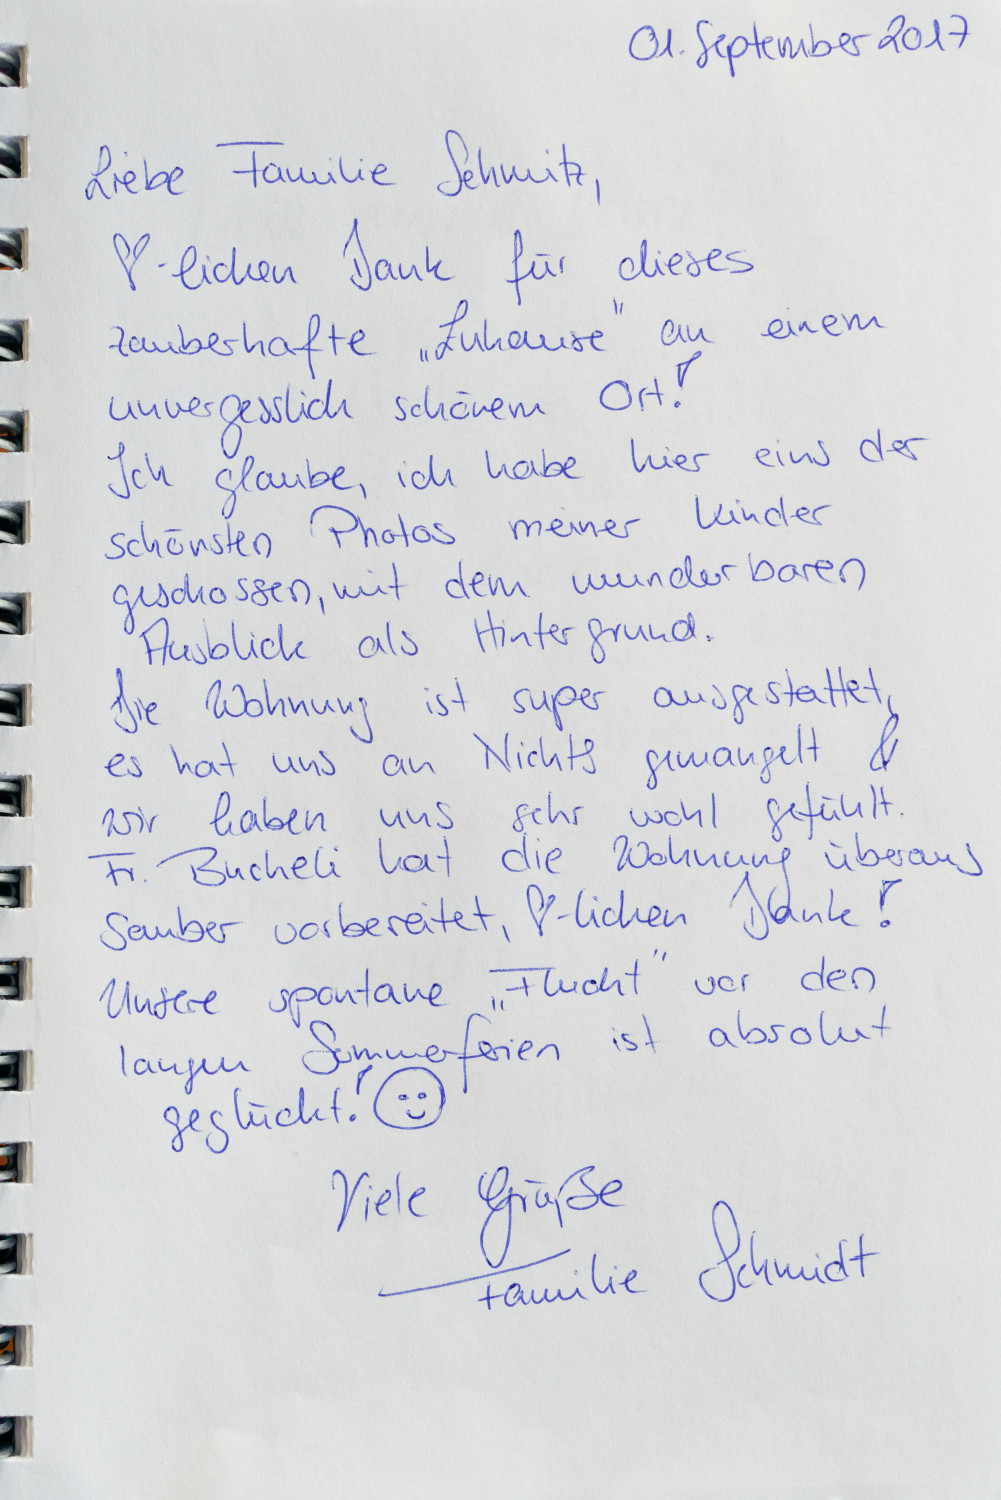 01. September 2017
Liebe Familie Schmitz,
♡-lichen Dank für dieses
zauberhafte „Zuhause" an einem
unvergesslich schönem Ort!
Ich glaube, ich habe hier eins der
schönsten Photos meiner Kinder
geschossen, mit dem wunderbaren
Ausblick als Hintergrund.
Die Wohnung ist super ausgestattet,
es hat uns an Nichts gemangelt &
wir haben uns sehr wohl gefühlt.
Fr. Bucheli hat die Wohnung überaus
sauber vorbereitet, ♡-lichen Dank!
Unsere spontane „Flucht" vor den
langen Sommerferien ist absolut
geglückt! ☺
Viele Grüße
Familie Schmidt